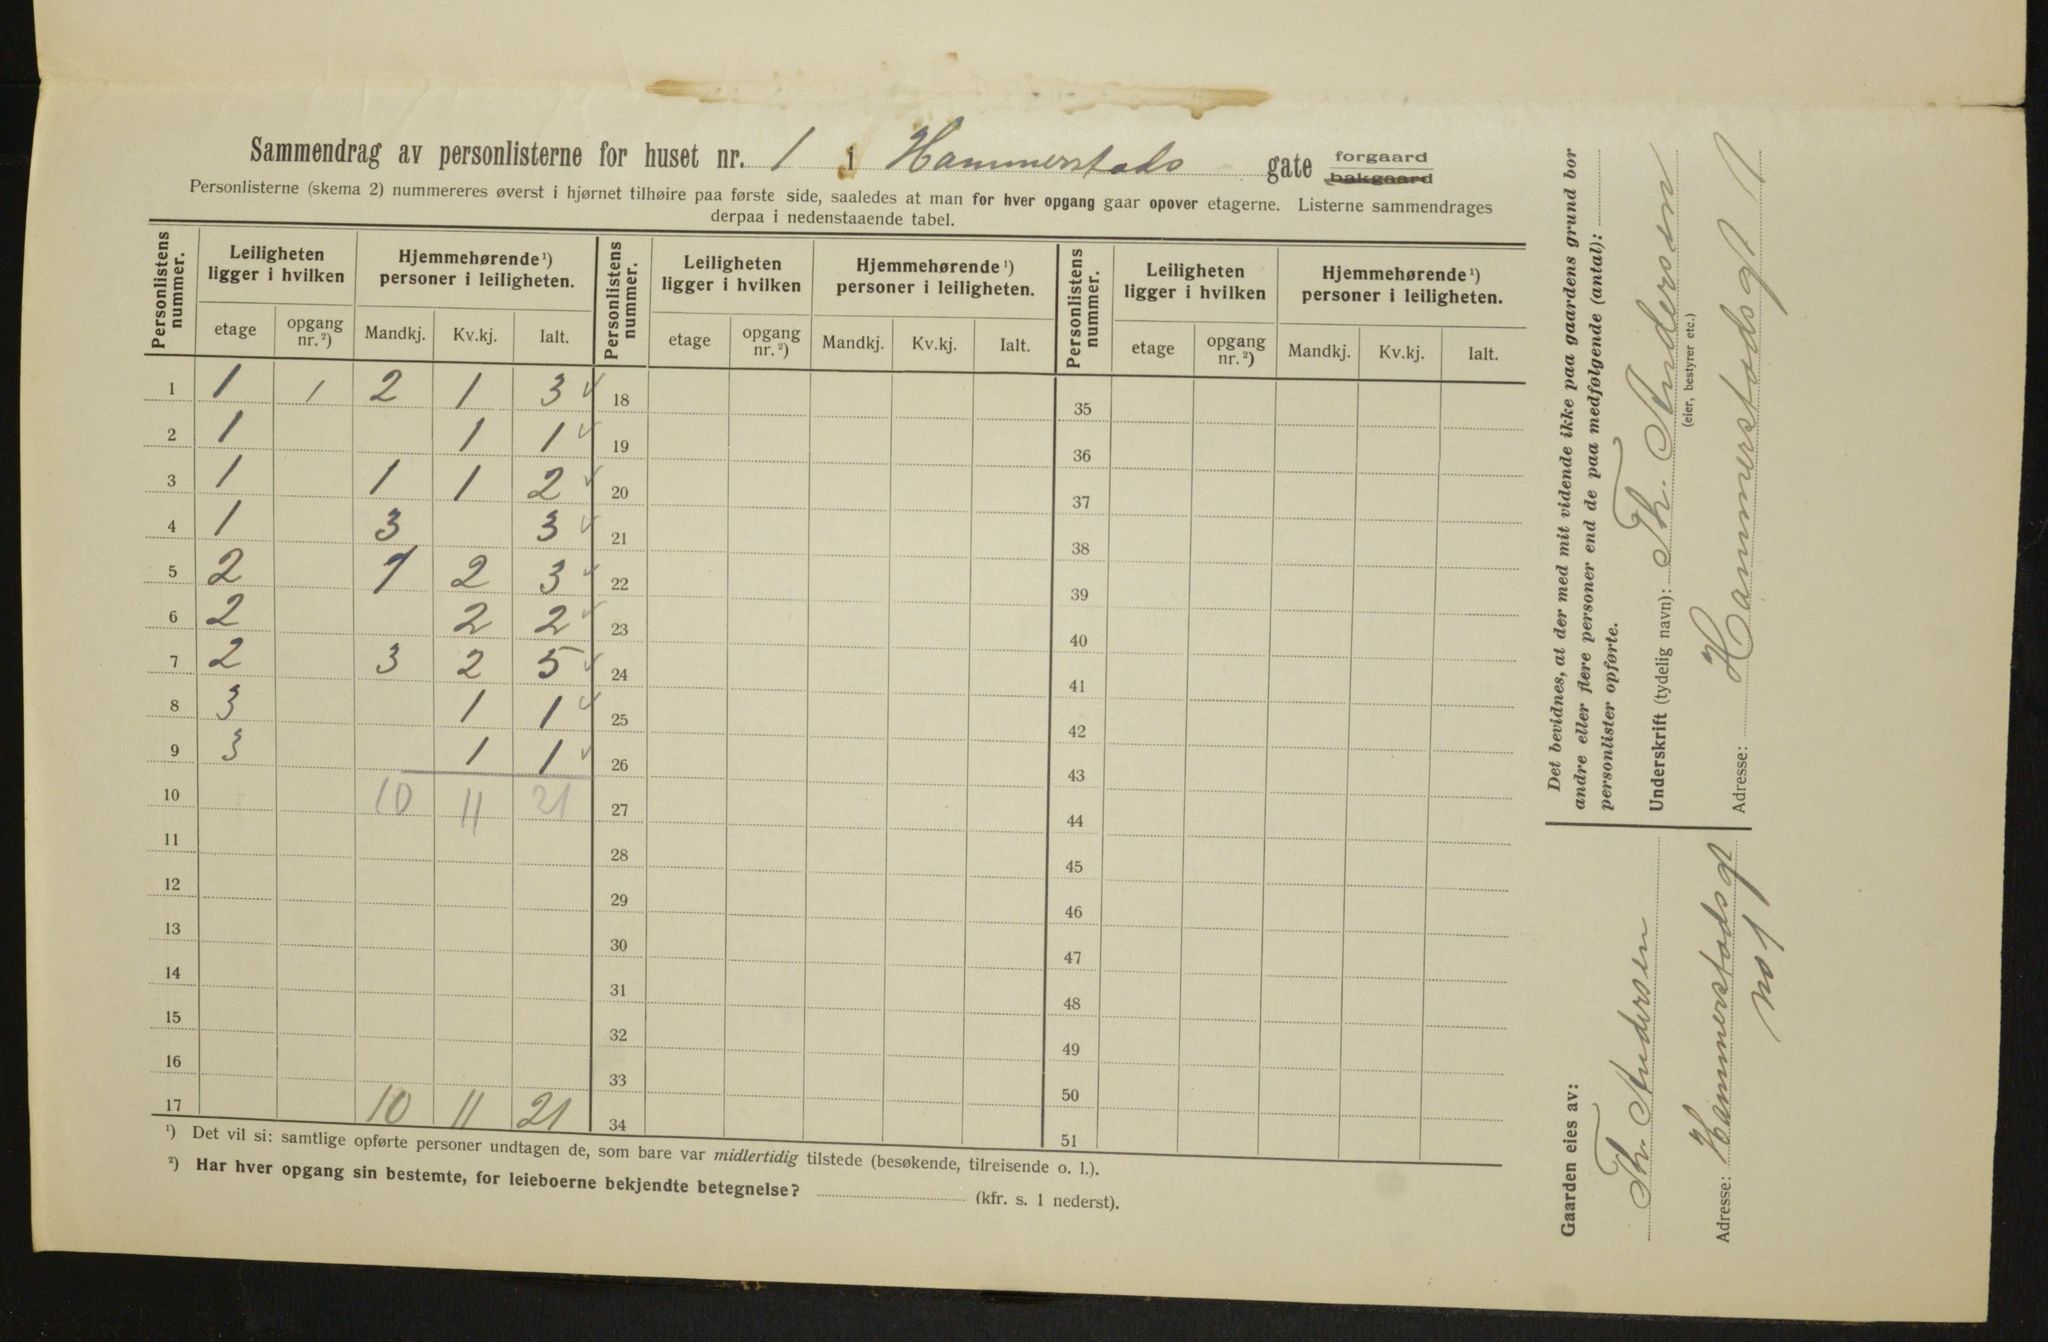 Sammendrag av personlisterne for huset nr. 1 i Hammerstads gate forgaard bakgaard
Personlisterne (skema 2) nummereres øverst i hjørnet tilhøire paa første side, saaledes at man for hver opgang gaar opover etagerne. Listerne sammendrages
derpaa i nedenstaaende tabel.
Personlistens nummer. Leiligheten ligger i hvilken Hjemmehørende ¹) personer i leiligheten. Personlistens nummer. Leiligheten ligger i hvilken Hjemmehørende ¹) personer i leiligheten. Personlistens nummer. Leiligheten ligger i hvilken Hjemmehørende ¹) personer i leiligheten.
etage opgang nr. ²) Mandkj. Kv.kj. Ialt. etage opgang nr. ²) Mandkj. Kv.kj. Ialt. etage opgang nr. ²) Mandkj. Kv.kj. Ialt.
1 1 1 2 1 3 18 35
2 1 1 1 19 36
3 1 1 1 2 20 37
4 1 3 3 21 38
5 2 1 2 3 22 39
6 2 2 2 23 40
7 2 3 2 5 24 41
8 3 1 1 25 42
9 3 1 1 26 43
10 10 11 21 27 44
11 28 45
12 29 46
13 30 47
14 31 48
15 32 49
16 33 50
17 10 11 21 34 51
¹) Det vil si: samtlige opførte personer undtagen de, som bare var midlertidig tilstede (besøkende, tilreisende o. l.).
²) Har hver opgang sin bestemte, for leieboerne bekjendte betegnelse? (kfr. s. 1 nederst).
Det bevidnes, at der med mit vidende ikke paa gaardens grund bor
andre eller flere personer end de paa medfølgende (antal):
personlister opførte.
Underskrift (tydelig navn): Th. Andersen
(eier, bestyrer etc.)
Adresse: Hammerstadsgt 1
Gaarden eies av:
Th. Andersen
Adresse: Hammerstadsgt
no 1